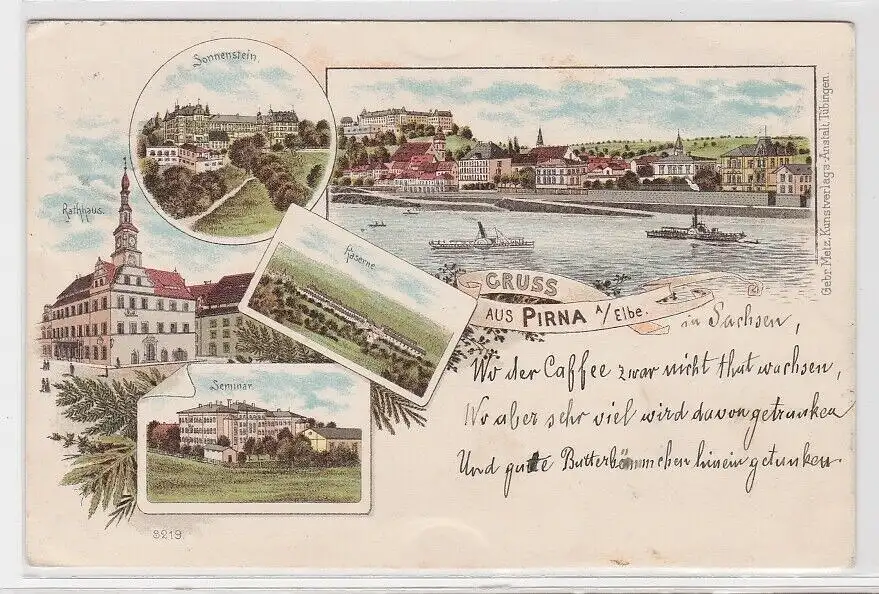 Sonnenstein.
Rathhaus.
Kaserne
GRUSS
AUS PIRNA A/Elbe.
in Sachsen,
Wo der Caffee zwar nicht thut wachsen,
Wo aber sehr viel wird davon getrunken
Und gute Butterbömmchen hinein getunken.
Seminar.
8219.
Gebr. Metz, Kunstverlags-Anstalt, Tübingen.